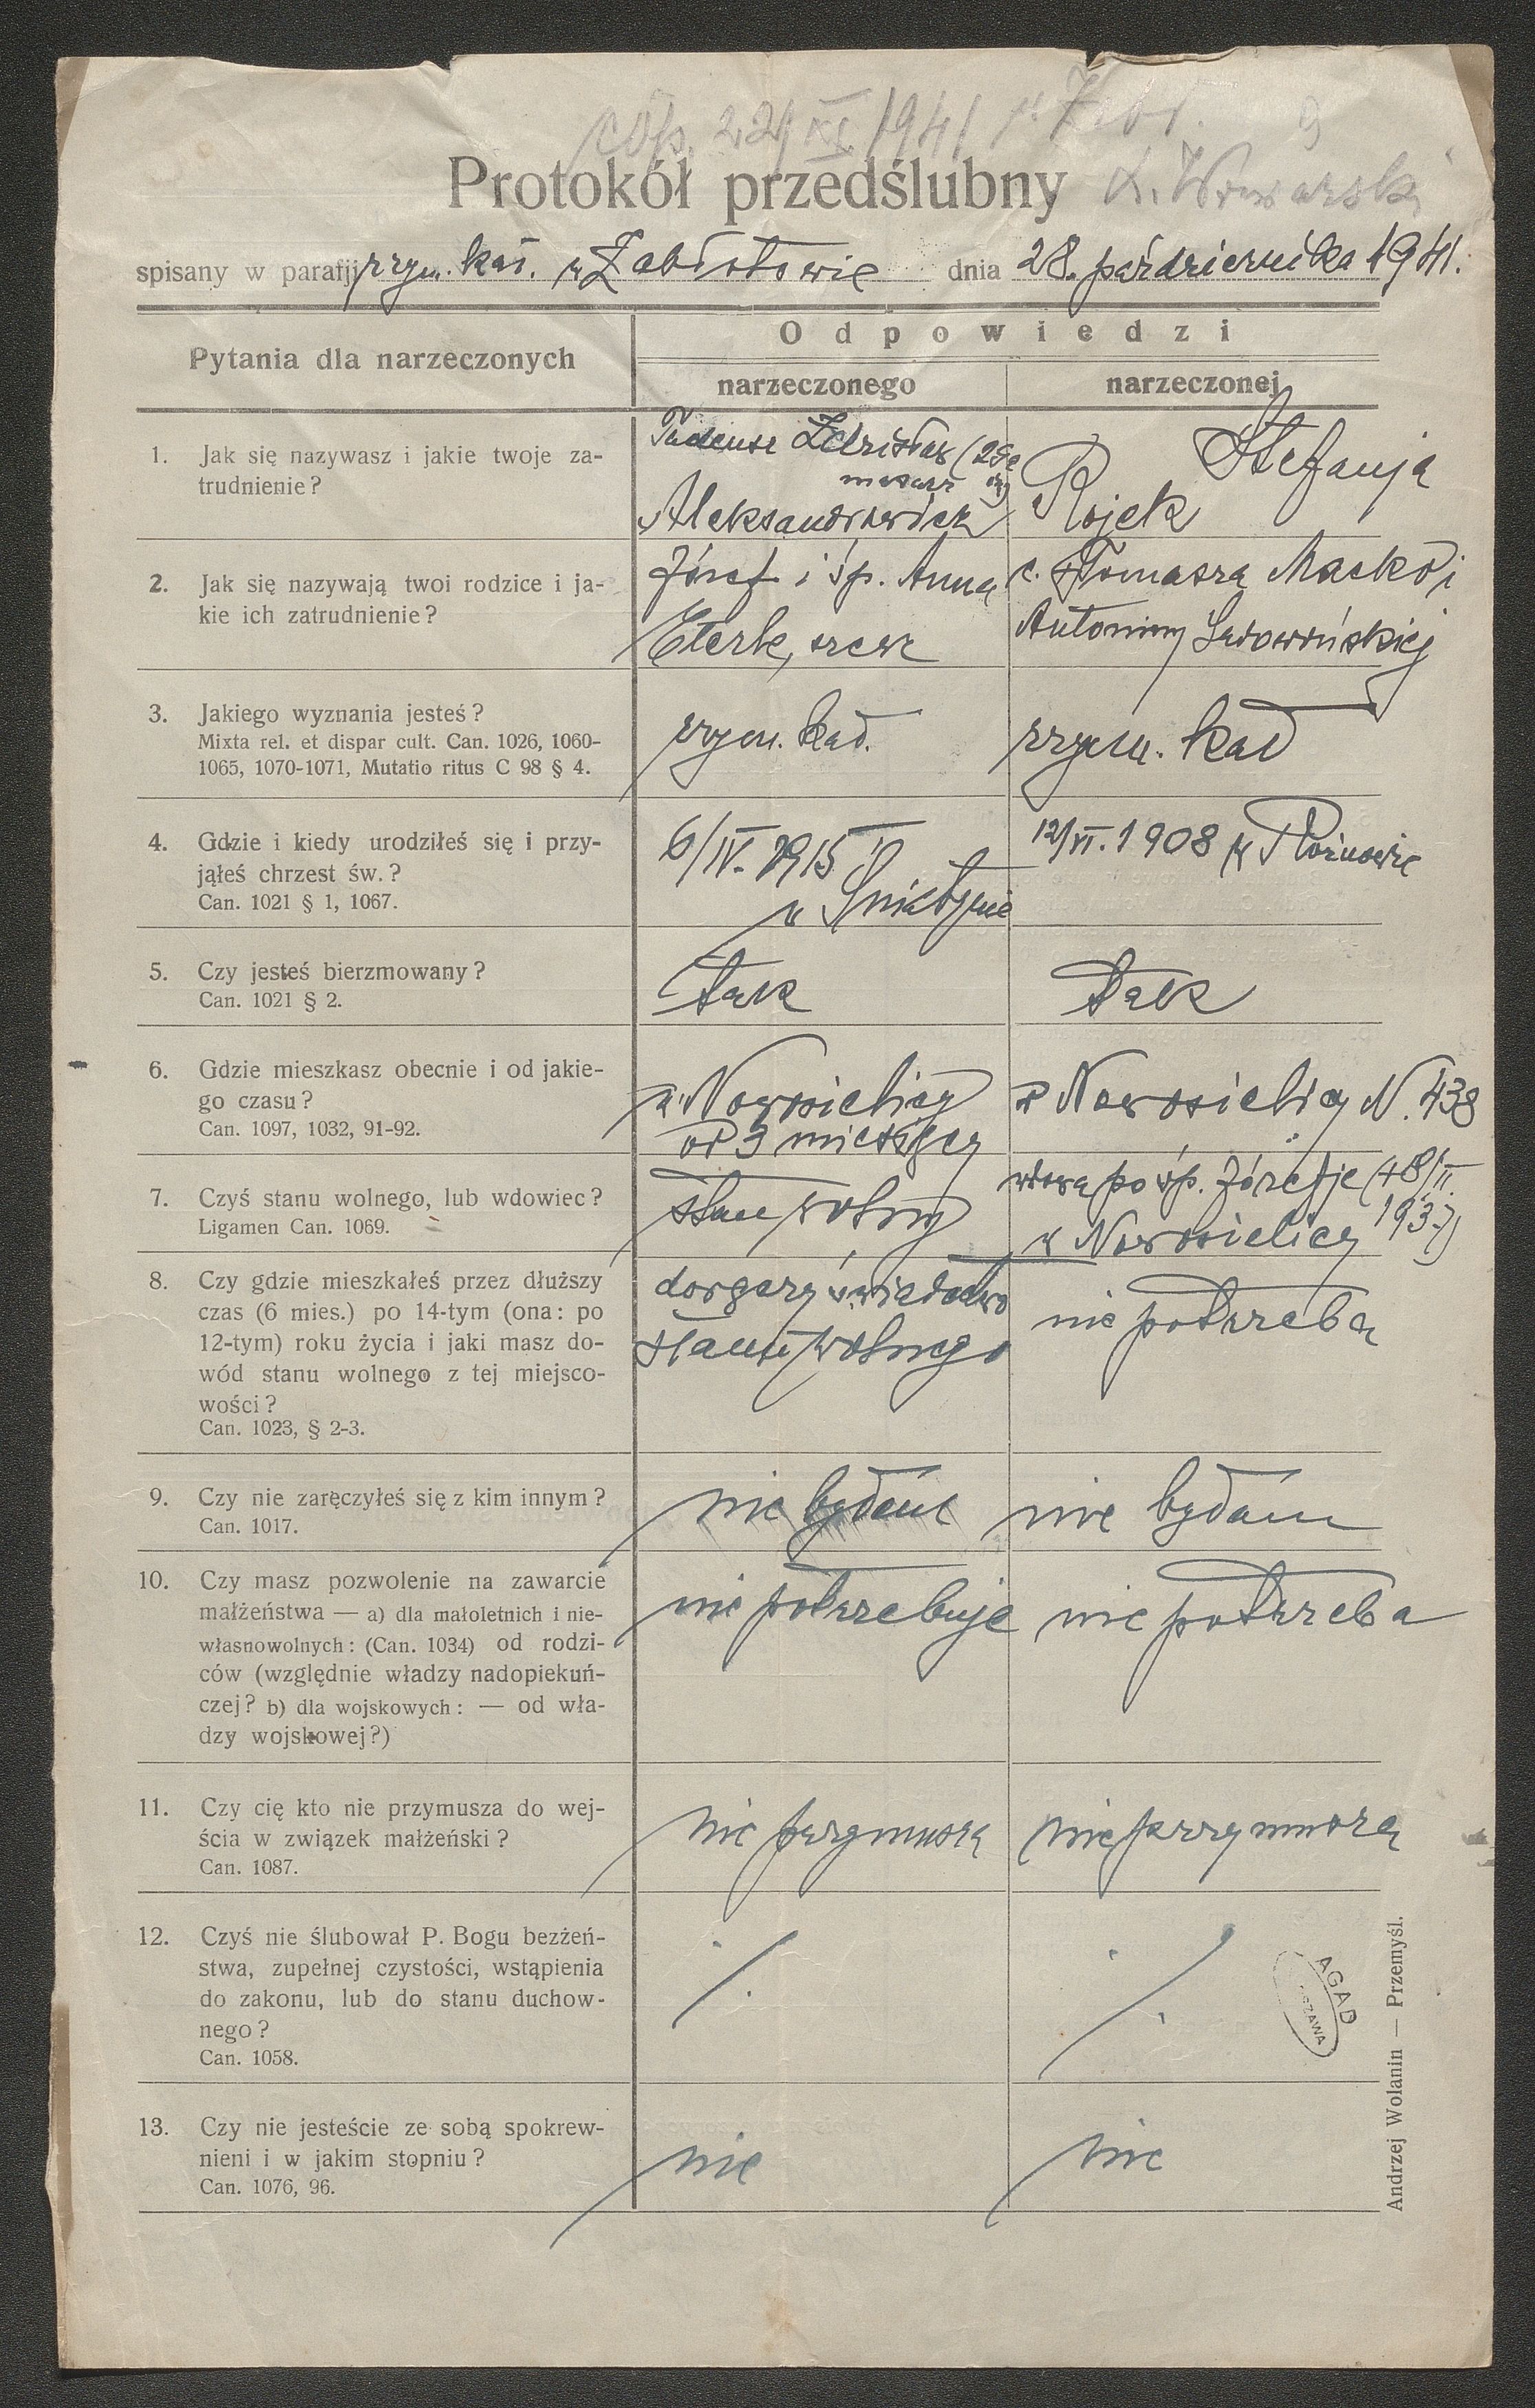 22/XI 1941
Protokół przedślubny
spisany w parafji rzym. kat. w Zabłotowie dnia 28. października 1941.
Pytania dla narzeczonych
Odpowiedzi
narzeczonego
narzeczonej
1. Jak się nazywasz i jakie twoje za-
trudnienie?
Tadeusz Zdzisław
Aleksandrowicz
Stefanja
Rojek
2. Jak się nazywają twoi rodzice i ja-
kie ich zatrudnienie?
Józef i śp. Anna
szewc
c. Tomasza Maćko i
Antoniny
3. Jakiego wyznania jesteś?
Mixta rel. et dispar cult. Can. 1026, 1060-
1065, 1070-1071, Mutatio ritus C 98 § 4.
rzym. kat.
rzym. kat
4. Gdzie i kiedy urodziłeś się i przy-
jąłeś chrzest św.?
Can. 1021 § 1, 1067.
6/IV. 1915
w Śniatynie
12/VI. 1908 w Rożnowie
5. Czy jesteś bierzmowany?
Can. 1021 § 2.
tak
tak
6. Gdzie mieszkasz obecnie i od jakie-
go czasu?
Can. 1097, 1032, 91-92.
w Nowosielicy
od 3 miesięcy
w Nowosielicy N. 438
7. Czyś stanu wolnego, lub wdowiec?
Ligamen Can. 1069.
stan wolny
wdowa po śp. Józefie (+8/II.
1937)
w Nowosielicy
8. Czy gdzie mieszkałeś przez dłuższy
czas (6 mies.) po 14-tym (ona: po
12-tym) roku życia i jaki masz do-
wód stanu wolnego z tej miejsco-
wości?
Can. 1023, § 2-3.
świadectwo
stanu wolnego
nie potrzeba
9. Czy nie zaręczyłeś się z kim innym?
Can. 1017.
nie
nie
10. Czy masz pozwolenie na zawarcie
małżeństwa — a) dla małoletnich i nie-
własnowolnych: (Can. 1034) od rodzi-
ców (względnie władzy nadopiekuń-
czej? b) dla wojskowych: — od wła-
dzy wojskowej?)
nie potrzebuje
nie potrzeba
11. Czy cię kto nie przymusza do wej-
ścia w związek małżeński?
Can. 1087.
nie przymusza
nie przymusza
12. Czyś nie ślubował P. Bogu bezżeń-
stwa, zupełnej czystości, wstąpienia
do zakonu, lub do stanu duchow-
nego?
Can. 1058.
./.
./.
AGAD
13. Czy nie jesteście ze sobą spokrew-
nieni i w jakim stopniu?
Can. 1076, 96.
nie
nie
Andrzej Wolanin — Przemyśl.